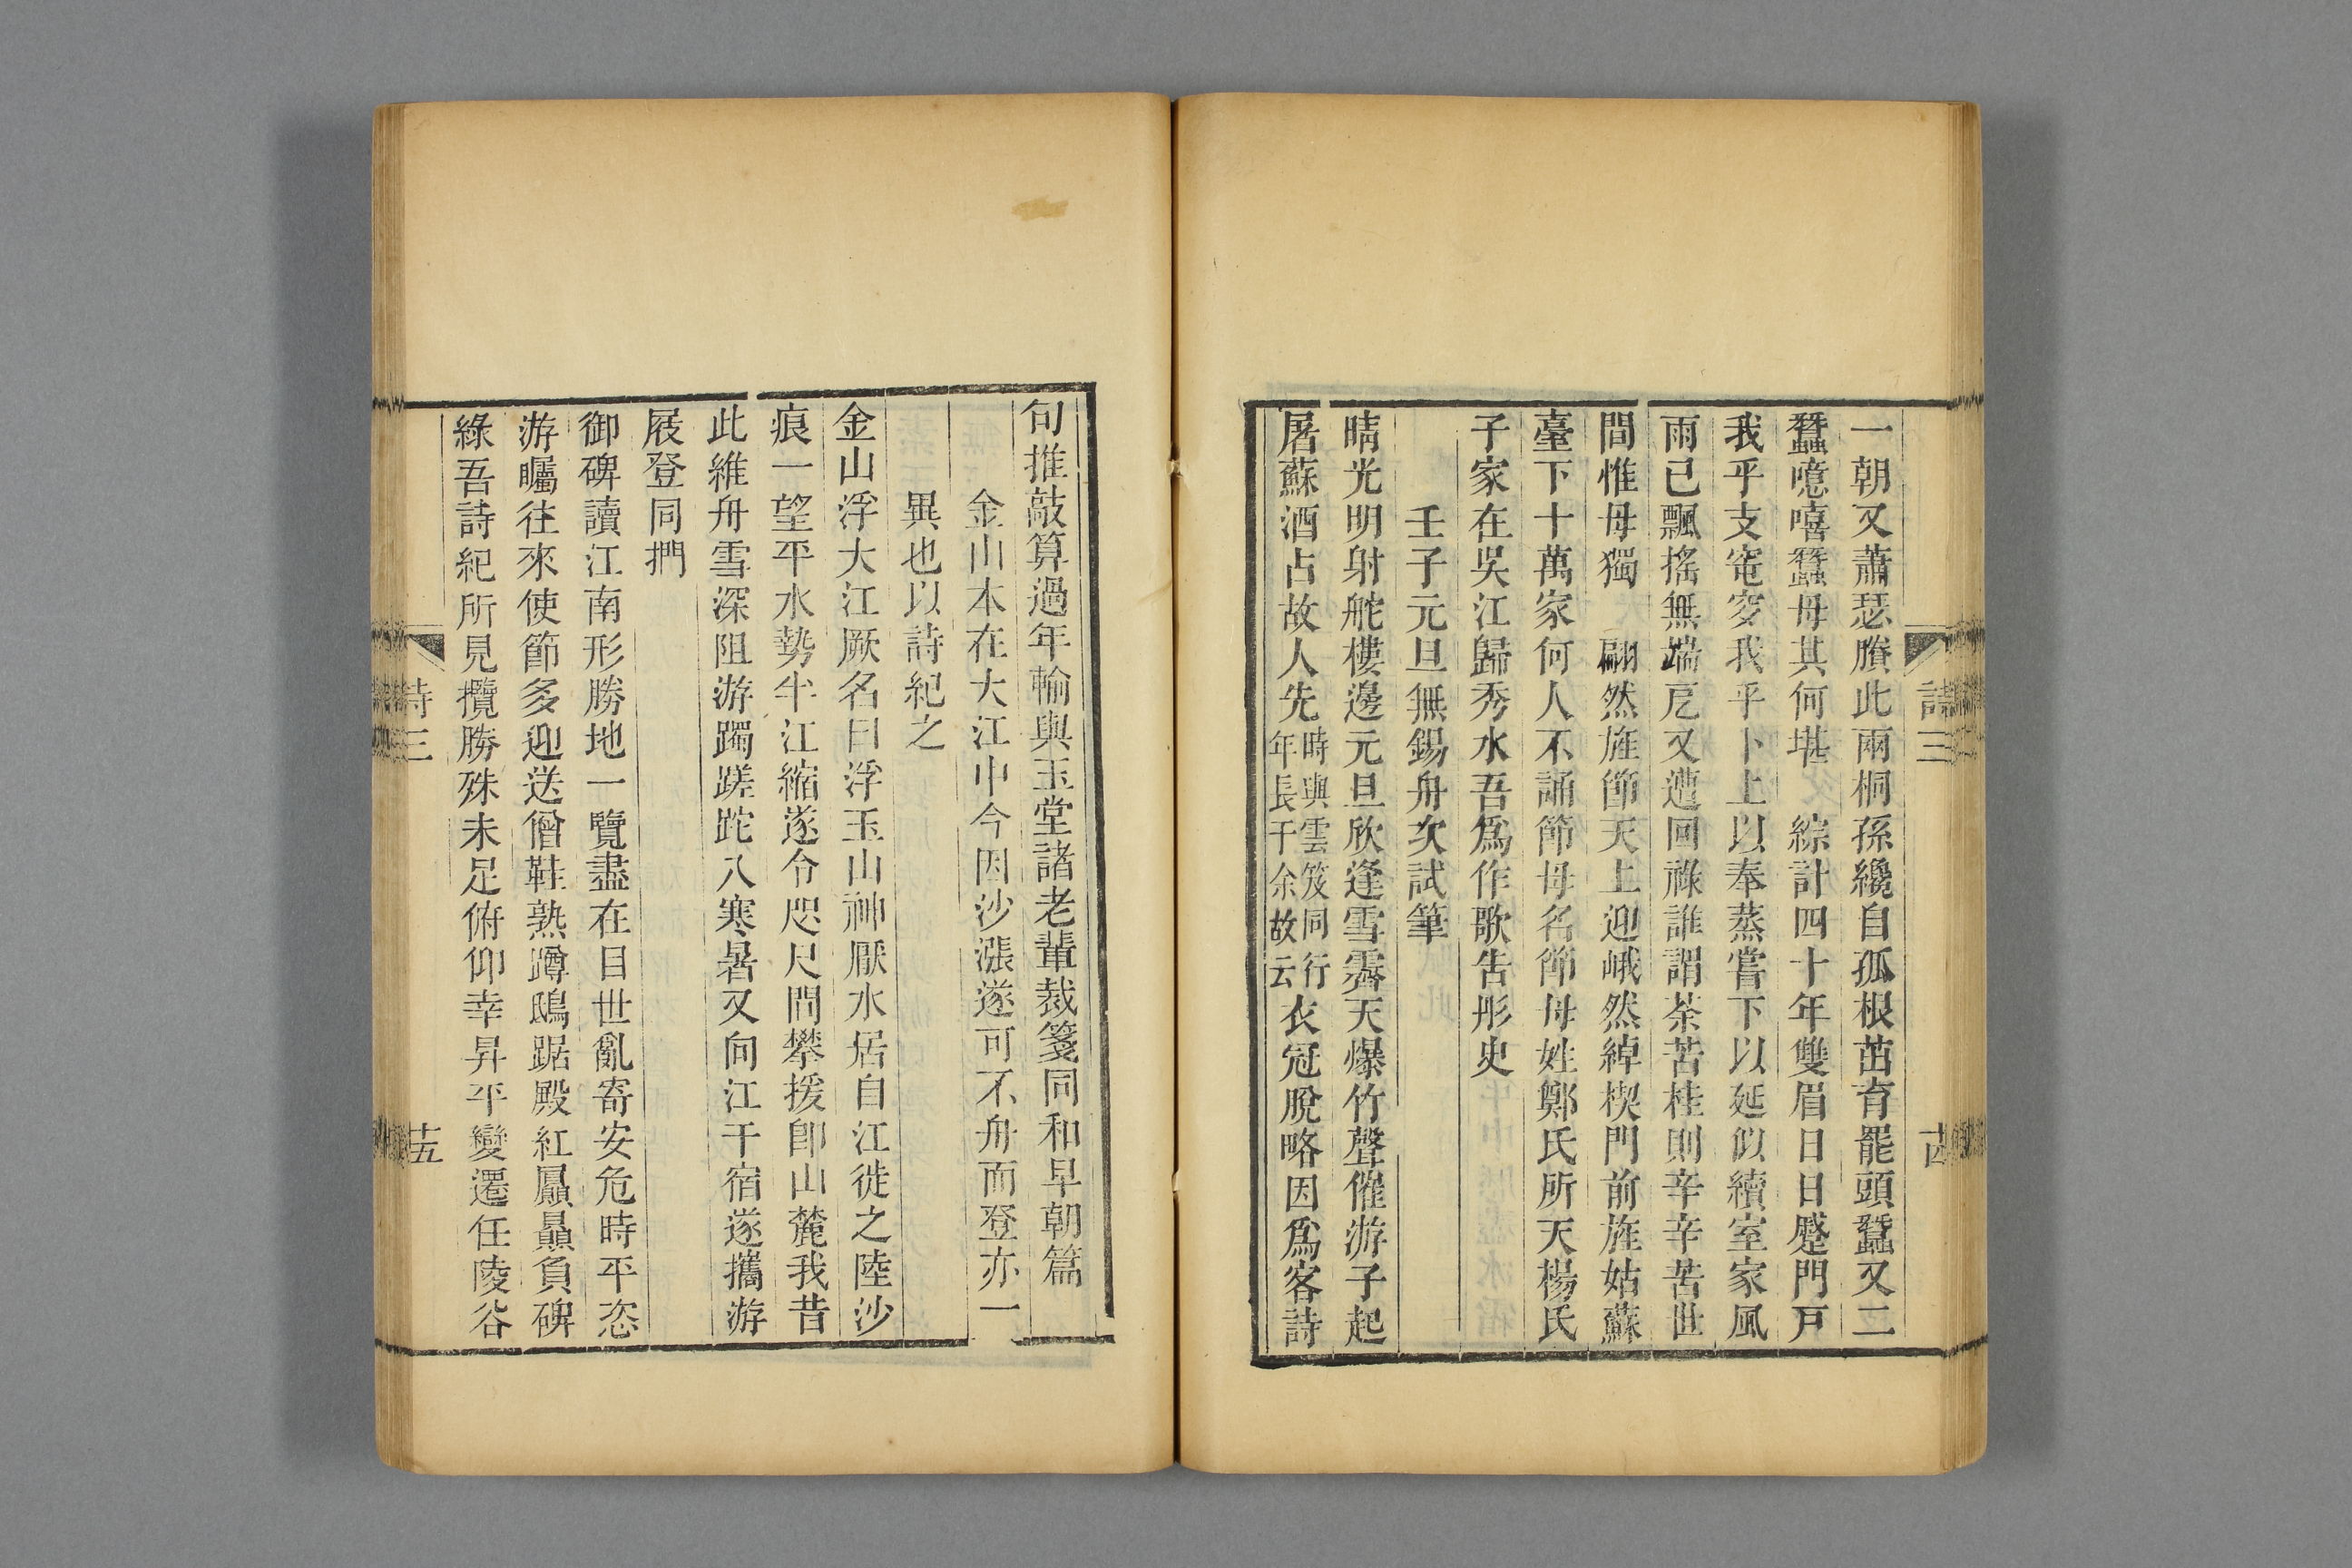 詩三
十四
一朝又蕭瑟賸此兩桐孫纔自孤根茁育罷頭蠶又二
蠶噫嘻蠶母其何堪 綜計四十年雙眉日日蹙門戸
我乎支窀穸我乎卜上以奉蒸嘗下以延似續室家風
雨已飄搖無端戹又遭回祿誰謂荼苦桂則辛辛苦世
間惟母獨 翩然旌節天上迎峨然綽楔門前旌姑蘇
臺下十萬家何人不誦節母名節母姓鄭氏所天楊氏
子家在吳江歸秀水吾爲作歌告彤史
壬子元旦無錫舟次試筆
晴光明射舵樓邊元旦欣逢雪霽天爆竹聲催游子起
屠蘇酒占故人先時與雲笈同行年長于余故云衣冠脫略因爲客詩
句推敲算過年輸與玉堂諸老輩裁箋同和早朝篇
金山本在大江中今因沙漲遂可不舟而登亦一
異也以詩紀之
金山浮大江厥名曰浮玉山神厭水居自江徙之陸沙
痕一望平水勢半江縮遂令咫尺間攀援卽山麓我昔
此維舟雪深阻游躅蹉跎八寒暑又向江干宿遂攜游
屐登同捫
御碑讀江南形勝地一覽盡在目世亂寄安危時平恣
游矚往來使節多迎送僧鞋熟蹲鴟踞殿紅贔屭負碑
綠吾詩紀所見攬勝殊未足俯仰幸昇平變遷任陵谷
詩三
十五